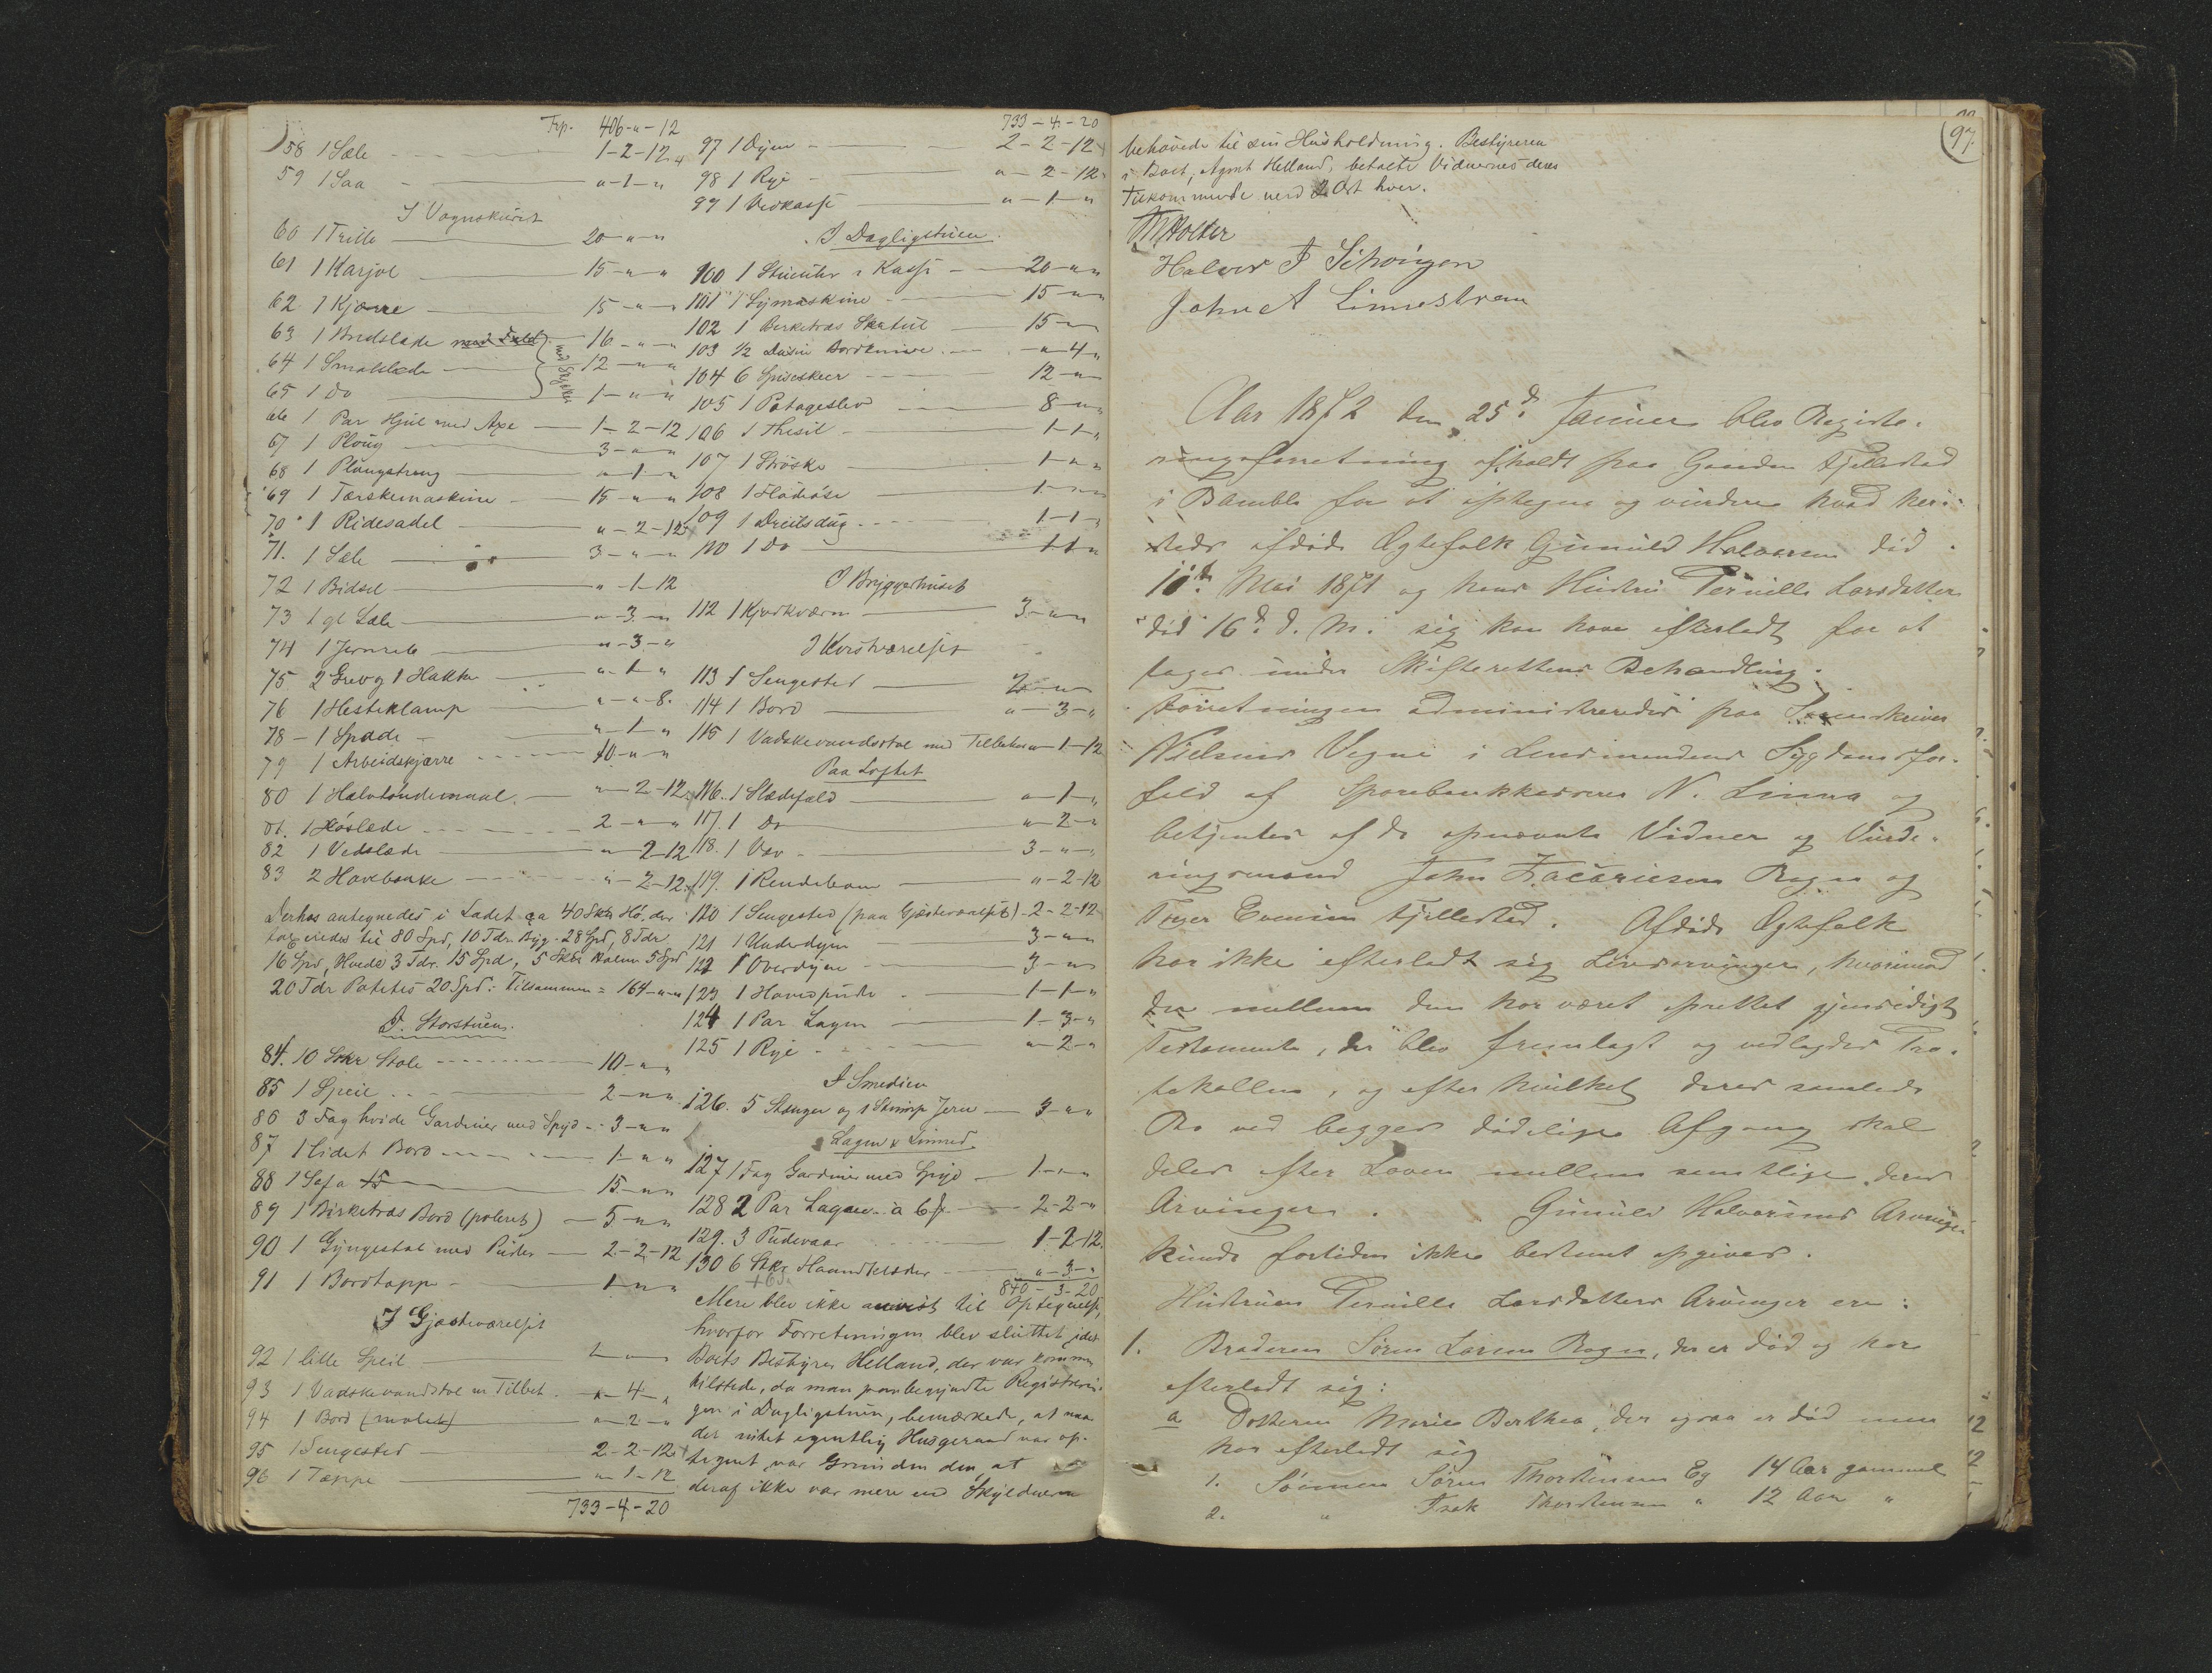 Trp. 406-"-12
58 1 Sæle 1-2-12
59 1 Saa "-1-"
I Vognskuret
60 1 Trille 20-"-"
61 1 Karjol 15-"-"
62 1 Kjærre 15-"-"
63 1 Bredslæde med Feld 16-"-"
64 1 Smalslæde 12-"-"
65 1 Do 1-"-"
66 1 Par Hjul med Axe 1-2-12
67 1 Ploug 3-"-"
68 1 Plougstreng "-1-"
69 1 Tærskemaskine 15-"-"
70 1 Ridesadel "-2-12
71. 1 Sæle 3-"-"
72 1 Bidsel "-1-12
73 1 gl Sæle "-3-"
74 1 "-3-"
75 2 Grev og 1 Hakke "-1-"
76 1 Hesteklamp "-"-8.
78 - 1 Spade "-1-"
79 1 Arbeidskjærre 10-"-"
80 1 Halvtøndemaal "-2-12
81. 1 Høslæde 2-"-"
82 1 Vedslæde "-2-12
83 2 Hovebænke "-2-12
Derhos antegnedes i Ladet ca 40 Skp Hø, der
til 80 Spd, 10 Tdr Byg 28 Spd, 8 Tdr
16 Spd, Hvede 3 Tdr. 15 Spd, 5 Halm 5 Spd
20 Tdr Potetes 20 Spd: Tilsammen = 164-"-"
I Storstuen.
84. 10 Stkr Stole 10-"-"
85 1 Speil 2-"-"
86 3 Fag hvide Gardiner med Spyd 3-"-"
87 1 lidet Bord 1-"-"
88 1 Sofa 15 15-"-"
89 1 Birketræs Bord (poleret) 5-"-"
90 1 Gyngestol med Puder 2-2-12
91 1 Bordtæppe 1-"-"
I Gjæsteværelset
92 1 lille Speil 1-"-"
93 1 Vadskevandstol m Tilbeh. "-4-"
94 1 Bord (malet) "-2-"
95 1 Sengested 2-2-12
96 1 Tæppe "-1-12
733-4-20
733-4-20
97 1 Dyne 2-2-12
98 1 Rye "-2-12
99 1 Vedkasse "-1-"
I Dagligstuen.
100 1 Stueuhr i Kasse 20-"-"
101 1 Symaskine 15-"-"
102 1 Berketræs Skatul 15-"
103 1/2 Dusin Bordknive "-4-"
104 6 Spiseskeer 12-"-"
105 1 Potageslev 8-"-"
106 1 Thesil 1-1-"
107 1 Ströske 1-"-"
108 1 Flödeöse 1-"-"
109 1 Dreilsdug 1-1-"
110 1 Do 1-1-"
I Bryggerhuset
112 1 Kjødkværn 3-"-"
113 1 Sengested 2-"-"
114 1 Bord "-3-"
115 1 Vadskevandsstol med Tilbehør "-1-12
Paa Loftet
116. 1 Slædefæld "-1-"
117. 1 Do "-2-"
118. 1 Væv 3-"-"
119. 1 Rendebom "-2-12
120 1 Sengested (paa Gjesteværelset) 2-2-12
121 1 Underdyne 3-"-"
122 1 Overdyne 3-"-"
123 1 Hovedpude 1-1-"
124 1 Par Lagen 1-3-"
125 1 Rye "-2-"
I Smedien
126. 5 Stænger og 1 Stump Jern 3-"-"
Lagen & Linned
127 1 Fag Gardiner med Spyd 1-"-"
128 2 Par Lagen a 6 2-2-"
129. 3 Pudevaar 1-2-12.
130 6 Stkr Haandklæder "-3-"
840-3-20
Mere blev ikke anvist til Optegnelse,
hvorfor Forretningen blev sluttet, idet
Boets Bestyrer Helland, der var kommen
tilstede, da man paabegyndte Registrerin-
gen i Dagligstuen, bemærkede, at naar
der intet egentlig Husgeraad var op-
tegnet var Grunden den, at
deraf ikke var mere end Skyldneren
97.
behövede til sin Husholdning. Bestyreren
i Boet, Agent Helland, betalte Vidnernes deres
Tilkommende med 2 Ort hver.
Holter
Halvor J
John A Linnestrøm
Aar 1872 den 25d. Januar blev Registe-
ringsforretning afholdt paa Gaarden Fjellestad
i Bamble for at optegne og vurdere hvad her-
steds afdøde Ægtefolk Gunuld Halvorsen död
10d. Mai 1871 og hans Hustru Pernille Larsdatter
död 16d. d. M. sig kan have efterladt for at
tages under Skifterettens Behandling.
Forretningen administreredes paa Sorenskriver
Nielsens Vegne i Lensmandens Sygdomsfor-
fald af Sparebankkasserer N. Linna og
betjentes af de opnævnte Vidner og Vurde-
ringsmænd John Zacariesen Rogn og
Evensen Fjellestad. Afdøde Ægtefolk
har ikke efterladt sig Livsarvinger, hvorimod
der mellem dem har været oprettet gjensidigt
Testamente, der blev fremlagt og vedlagdes Pro-
tokollen, og efter hvilket deres samlede
Bo ved begges dödelige Afgang skal
deles efter Loven mellem samtlige deres
Arvinger. Gunuld Halvorsens Arvinger
kunde fortiden ikke bestemt opgives.
Hustruen Pernille Larsdatters Arvinger ere:
1. Broderen Søren Larsen Rogn, der er død og har
efterladt sig:
a Datteren Maria Berthea, der ogsaa er död men
har efterladt sig
1. Sønnen Søren Thorstensen Eg 14 Aar gammel
2. " Isak Thorstensen " 12 Aar "